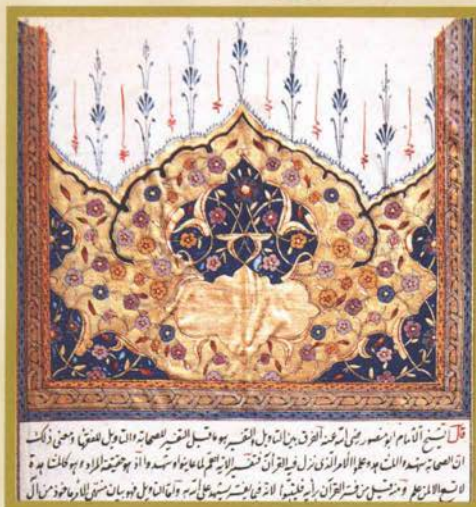 قال الشيخ الامام ابو منصور رضي الله عنه الفرق بين التاويل والتفسير هو ما قيل التفسير للصحابة والتاويل للفقها ومعنى ذلك
ان الصحابة شهدوا المشاهد وعلموا الامر الذي نزل فيه القرآن فتفسير الاية اهم لما عاينوا وشهدوا اذ هو حقيقة المراد وهو كالمشاهدة
لا تسع الا لمن علم ومنه قيل من فسر القرآن برأيه فليتبوأ لانه فيما يفسر يشهد على الله به واما التاويل فهو بيان منتهى الامر ماخوذ من آل